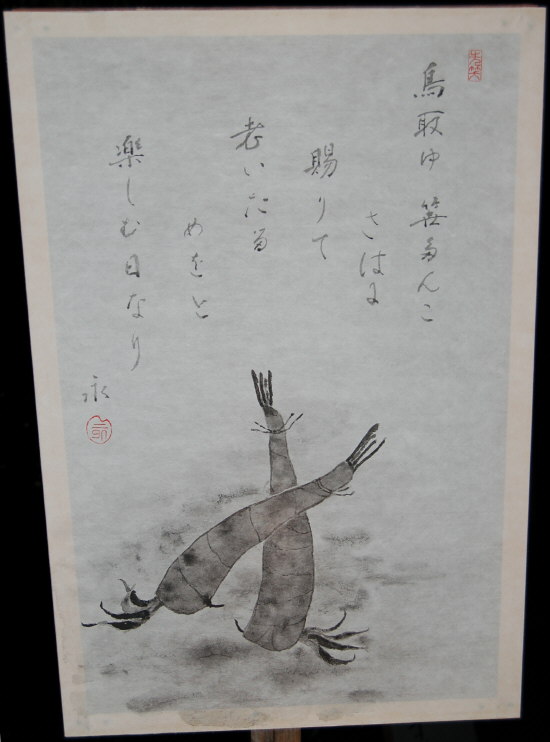 鳥取ゆ 笹多んこ
さはに
賜りて
老いたる
めをと
楽しむ日なり
永